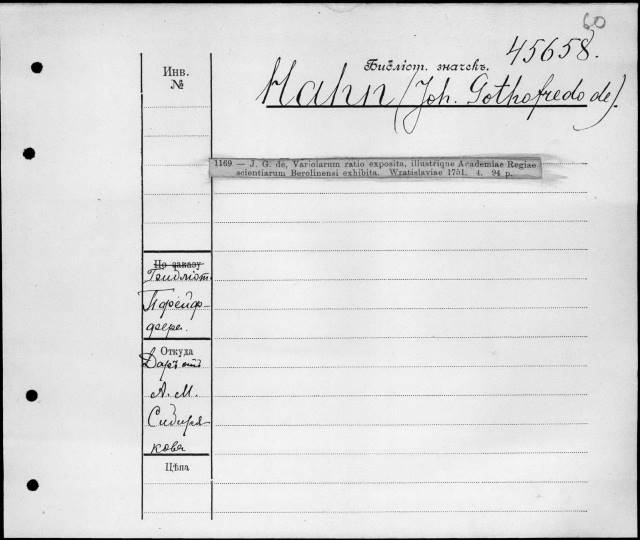 60
45658.
Инв.
№
Библіот. значекъ.
Hahn (Joh. Gothofredo de).
1169 — J. G. de, Variolarum ratio exposita, illustrique Academiae Regiae
scientiarum Berolinensi exhibita. Wratislaviae 1751. 4. 94 p.
По заказу
Библіот.
Пфейф-
фера.
Откуда
Даръ отъ
А. М.
Сибиря-
кова
Цѣна